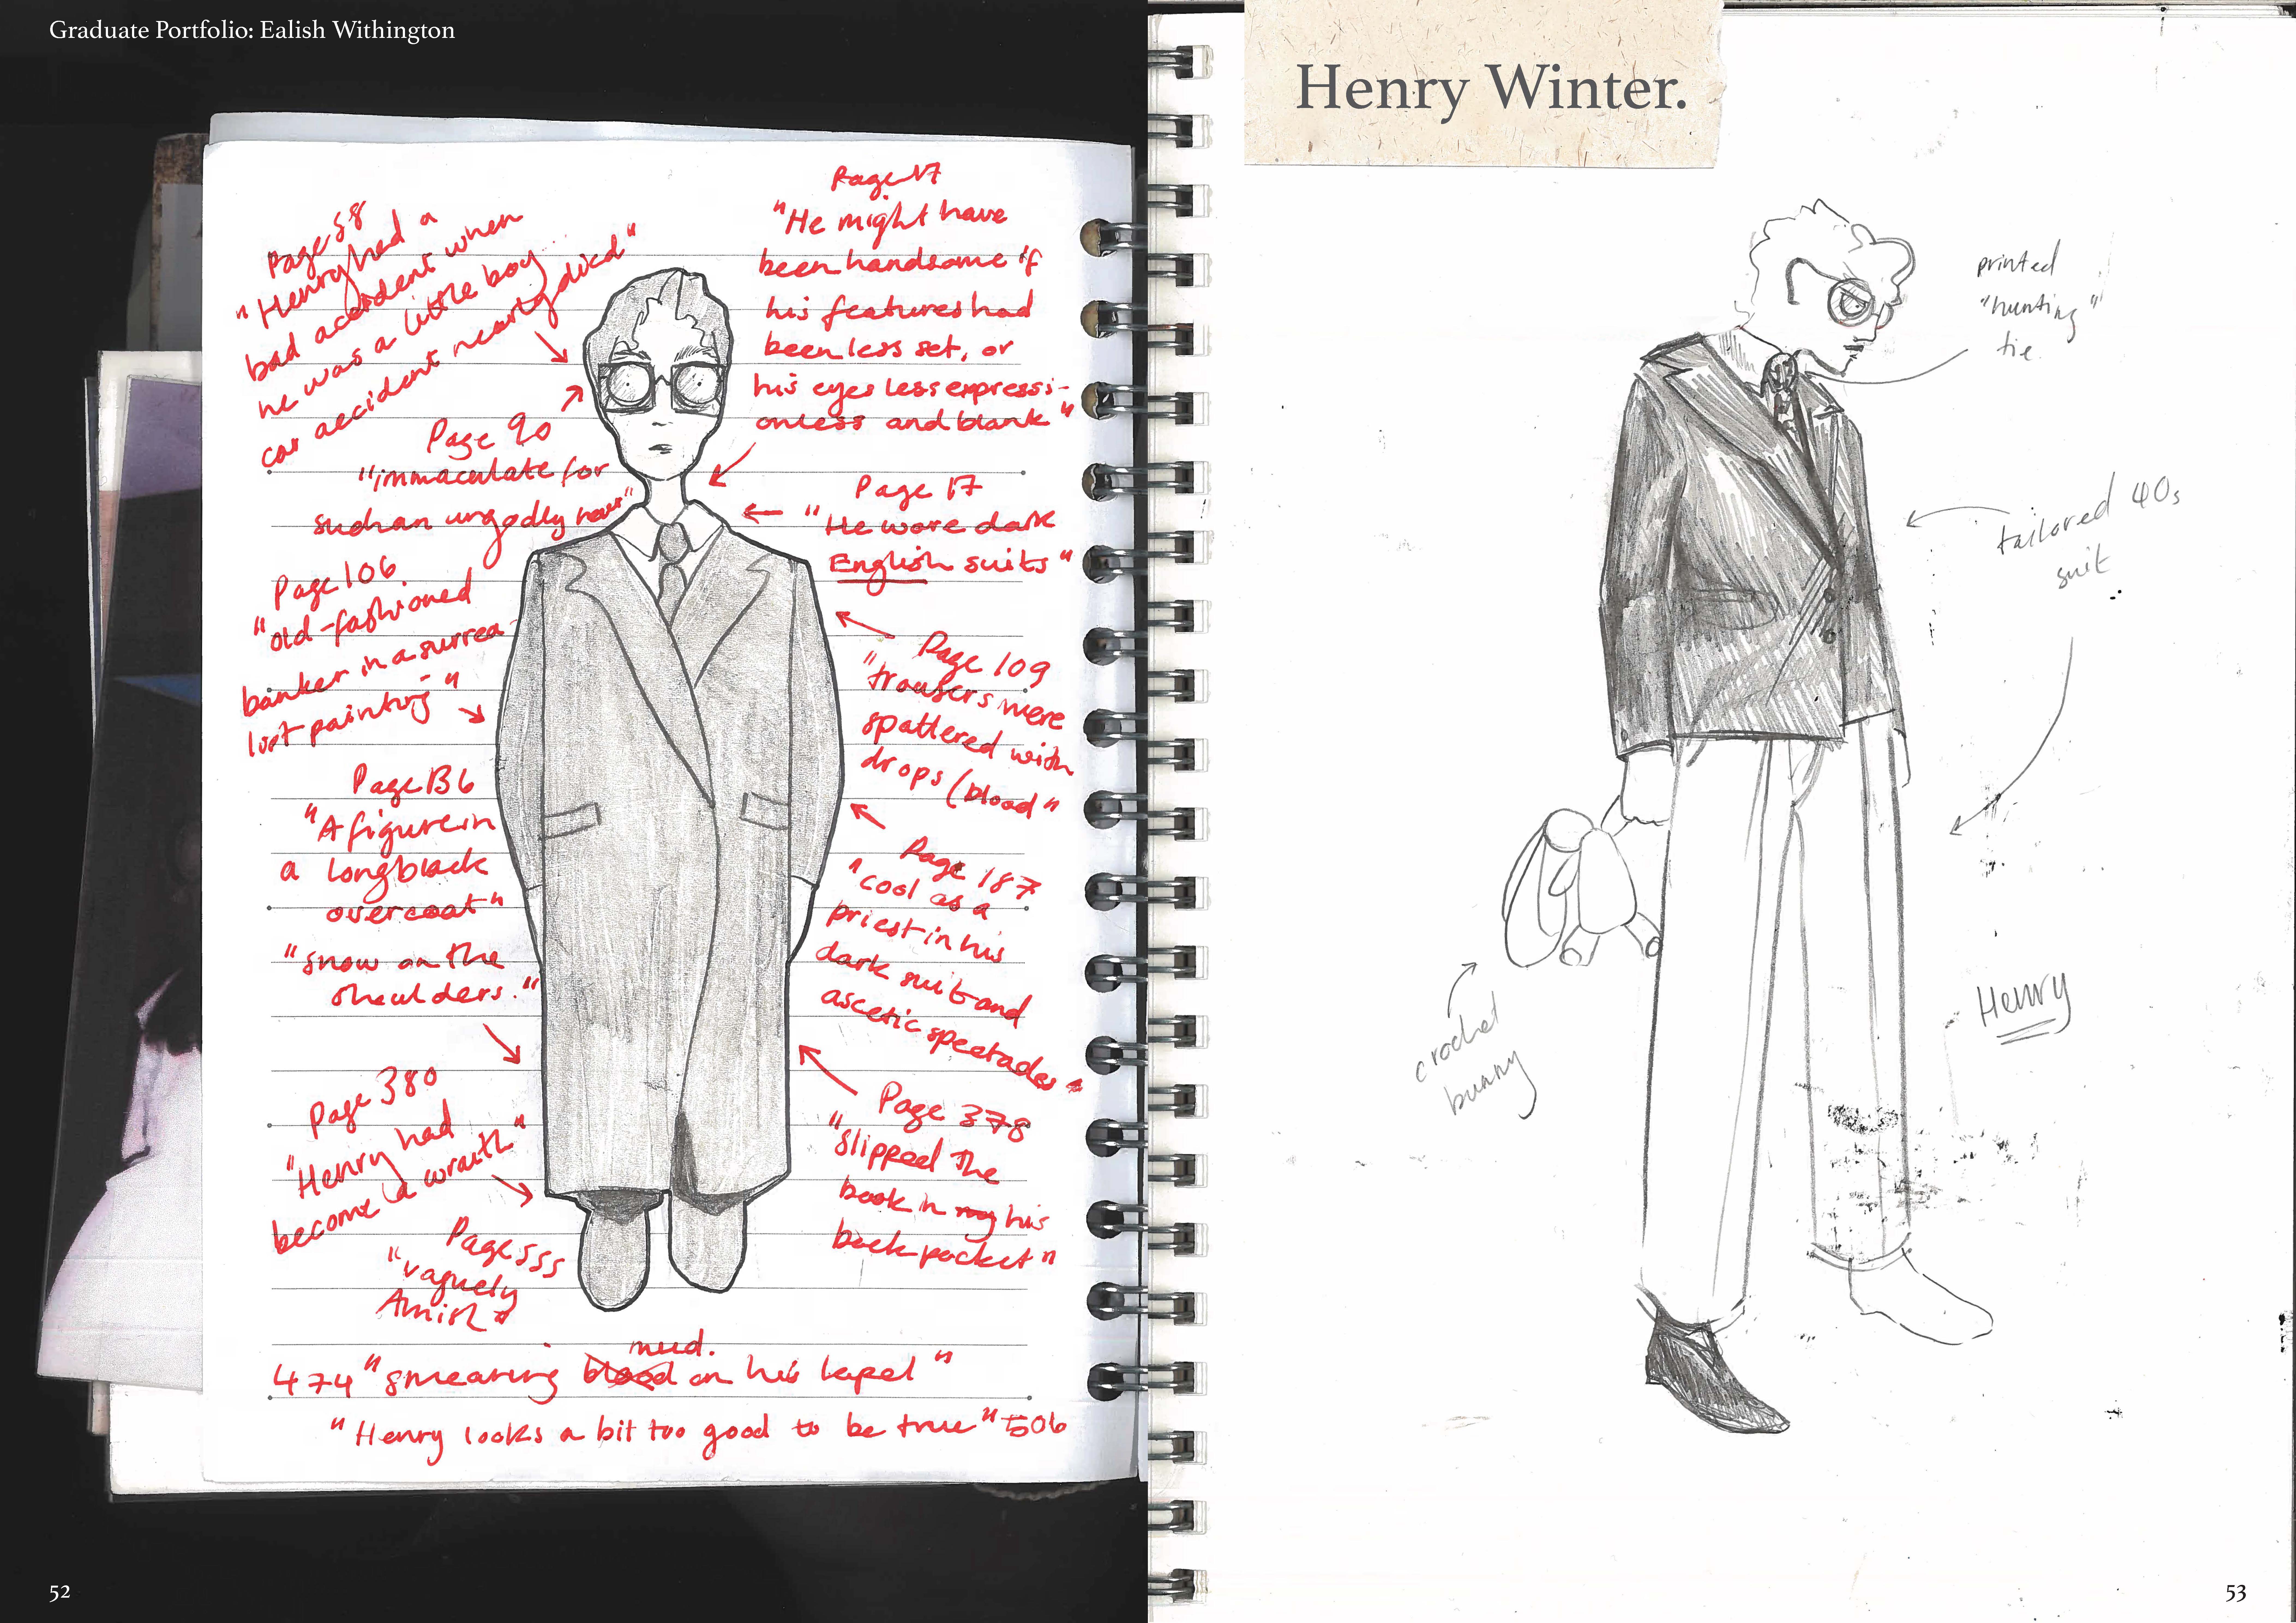 Graduate Portfolio: Ealish Withington
Page 58
"Henry had a
bad accident when
he was a little boy...
car accident nearly died"
Page 17
"He might have
been handsome if
his features had
been less set, or
his eyes less expressi-
onless and blank"
Page 90
"immaculate for
such an ungodly hour"
Page 17
"He wore dark
English suits"
Page 106
"old-fashioned
banker in a surrea-
list painting"
Page 109
"trousers were
spattered with
drops (blood"
Page 136
"A figure in
a long black
overcoat"
"snow on the
shoulders."
Page 187
"cool as a
priest in his
dark suit and
ascetic spectacles"
Page 380
"Henry had
become a wraith"
Page 378
"slipped the
book in my his
back pocket"
Page 555
"vaguely
Amish"
mud.
474 "smearing blood on his lapel"
"Henry looks a bit too good to be true" 506
52
Henry Winter.
printed
"hunting"
tie
tailored 40s
suit
crochet
bunny
Henry
53